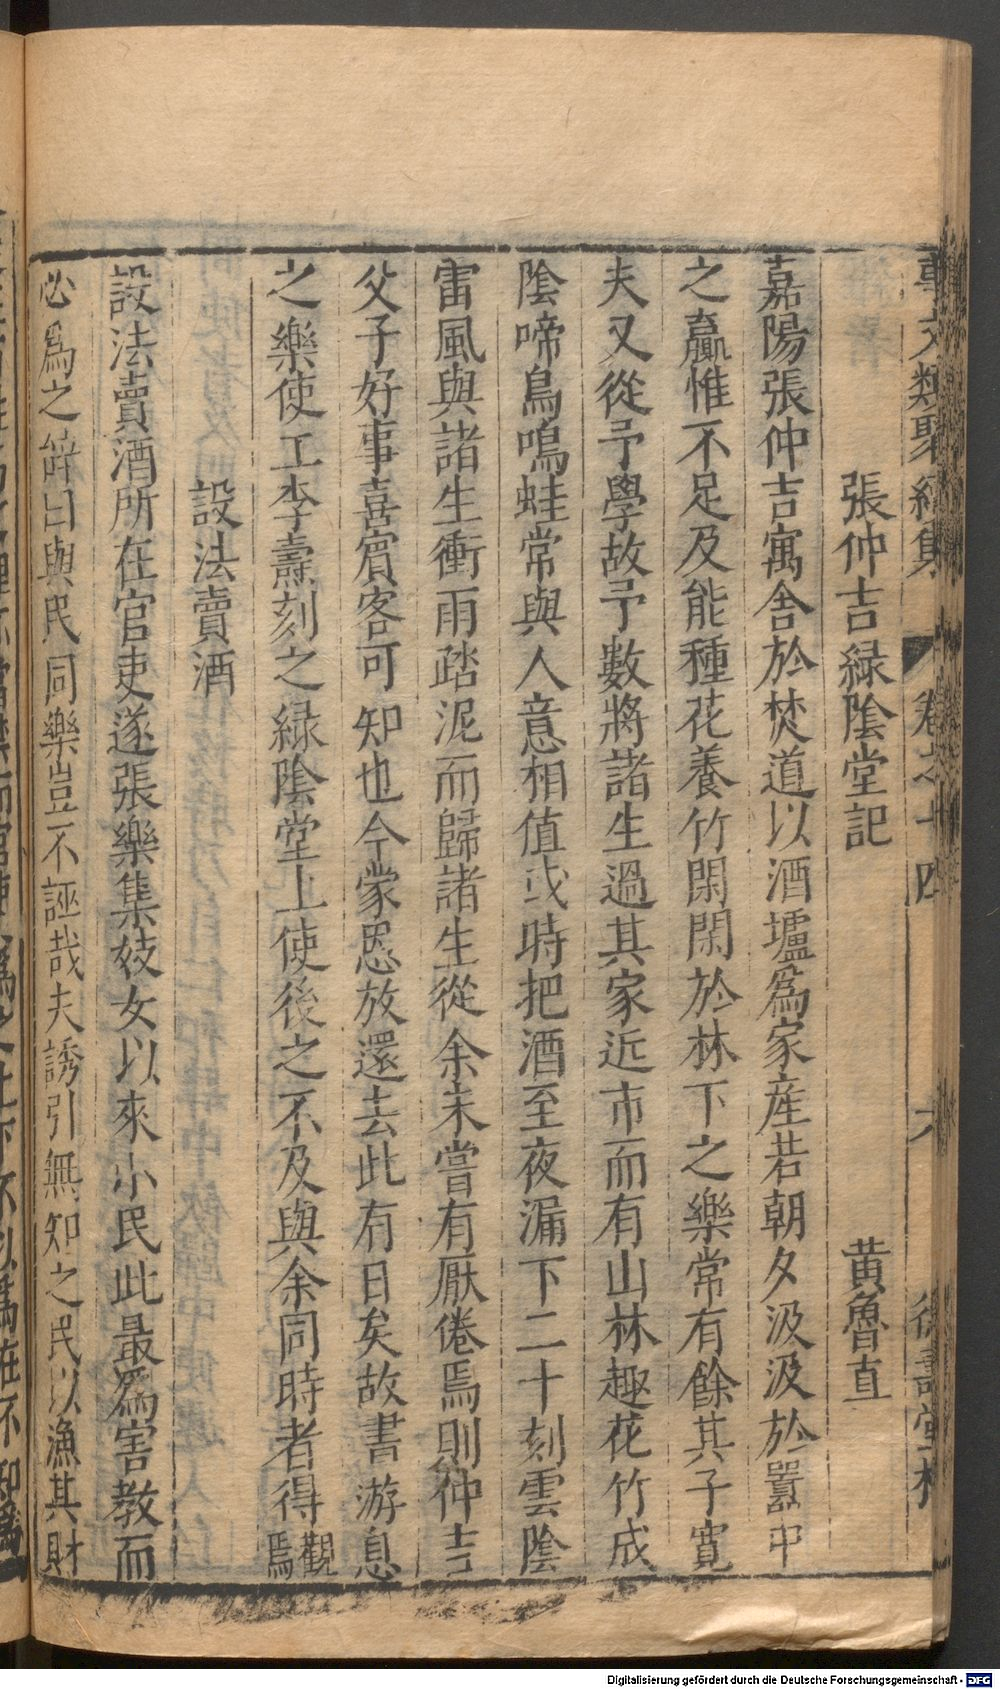 事文類聚續集 卷之十四 六 德壽堂梓
張仲吉緑陰堂記 黄魯直
嘉陽張仲吉寓舍於僰道以酒壚爲家産若朝夕汲汲於嚻中
之贏惟不足及能種花養竹閑閑於林下之樂常有餘其子寛
夫又從予學故予數將諸生過其家近市而有山林趣花竹成
陰啼鳥鳴蛙常與人意相值或時把酒至夜漏下二十刻雲陰
雷風與諸生衝雨踏泥而歸諸生從余未嘗有厭倦焉則仲吉
父子好事喜賓客可知也今蒙恩放還去此有日矣故書游息
之樂使工李燾刻之緑陰堂上使後之不及與余同時者得觀焉
設法賣酒
設法賣酒所在官吏遂張樂集妓女以來小民此最爲害教而
必爲之辭曰與民同樂豈不誣哉夫誘引無知之民以漁其財
Digitalisierung gefördert durch die Deutsche Forschungsgemeinschaft - DFG